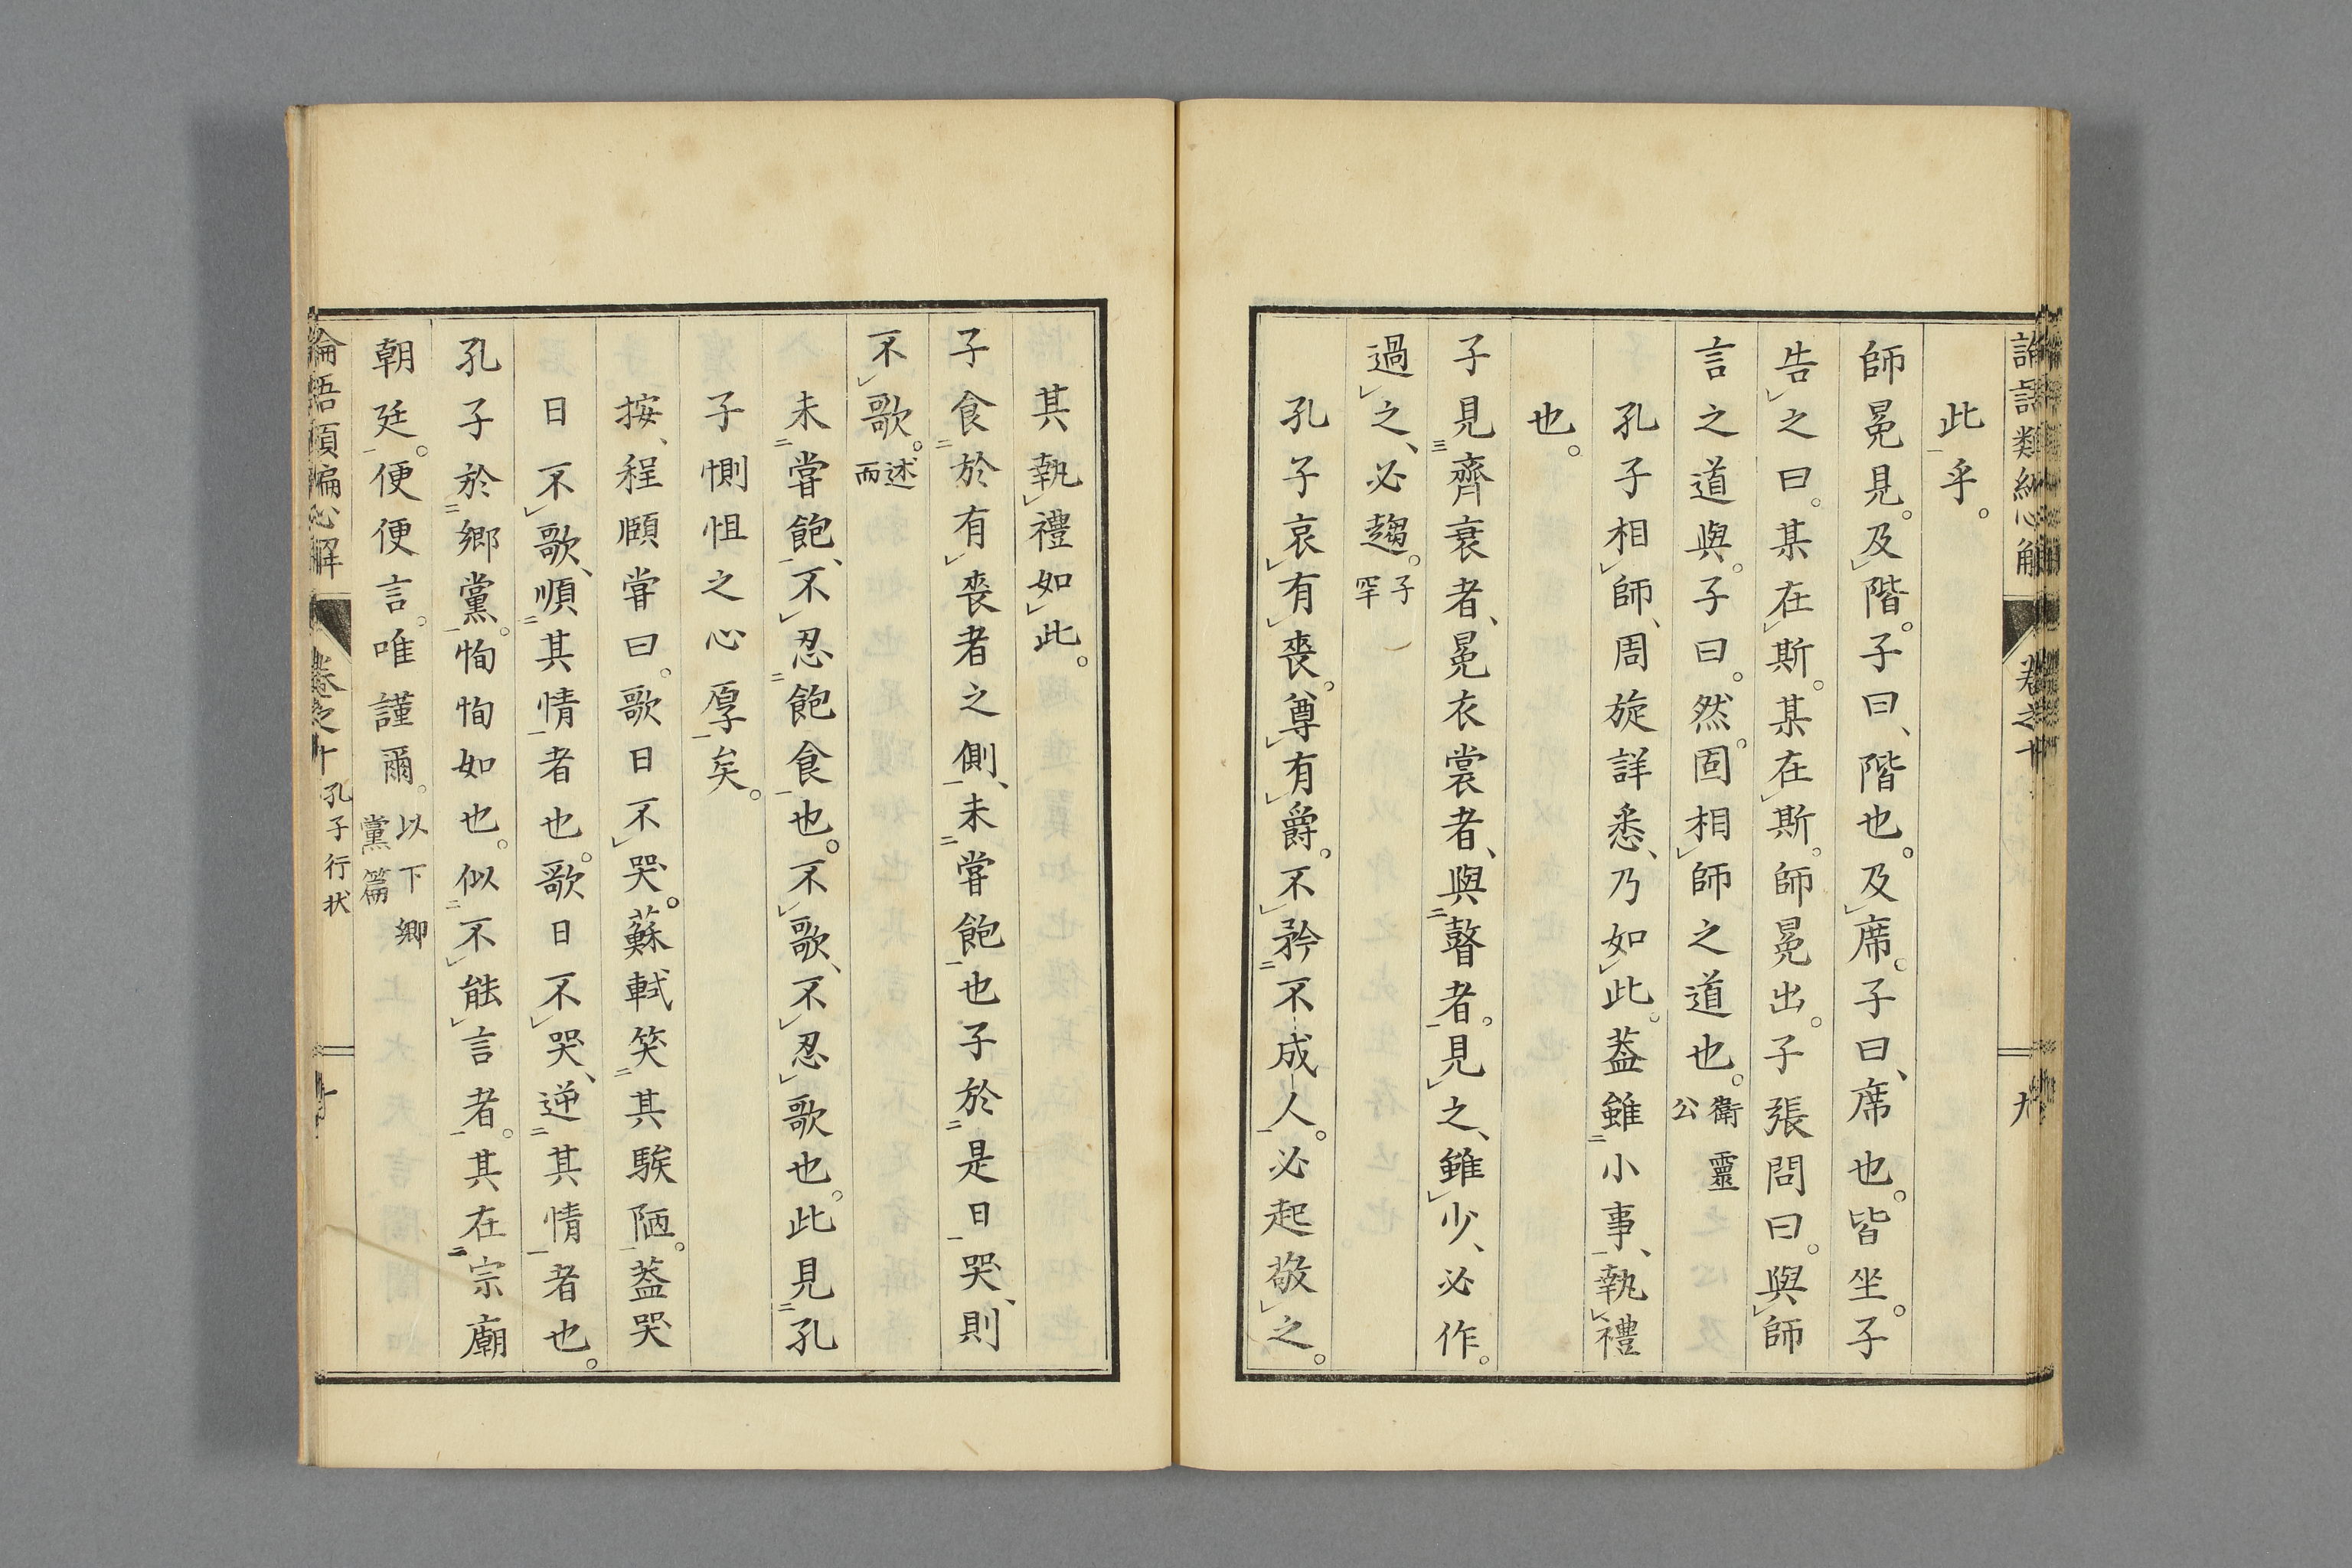 此乎。
師冕見。及階。子曰、階也。及席。子曰、席也。皆坐。子
告之曰。某在斯。某在斯。師冕出。子張問曰。與師
言之道與。子曰。然。固相師之道也。衛靈公
孔子相師、周旋詳悉、乃如此。蓋雖小事、執禮
也。
子見齊衰者、冕衣裳者、與瞽者。見之、雖少、必作。
過之、必趨。子罕
孔子哀有喪。尊有爵。不矜不成人。必起敬之。
其執禮如此。
子食於有喪者之側、未甞飽也子於是日哭、則
不歌。述而
未甞飽、不忍飽食也。不歌、不忍歌也。此見孔
子惻怛之心厚矣。
按、程頤甞曰。歌日不哭。蘇軾笑其騃陋。蓋哭
日不歌、順其情者也。歌日不哭、逆其情者也。
孔子於鄉黨。恂恂如也。似不能言者。其在宗廟
朝廷。便便言。唯謹爾。以下鄉黨篇
論語類編心解 卷之十 孔子行状 十